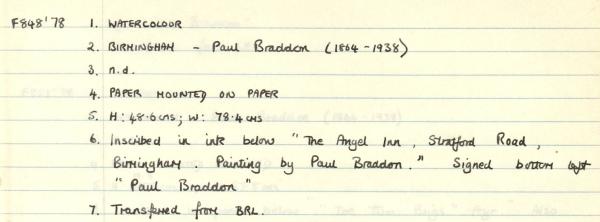 F848'78 1. WATERCOLOUR
2. BIRMINGHAM - Paul Braddon (1864-1938)
3. n.d.
4. PAPER MOUNTED ON PAPER
5. H: 48.6 cms; W: 78.4 cms
6. Inscribed in ink below "The Angel Inn, Stratford Road,
Birmingham. Painting by Paul Braddon." Signed bottom left
"Paul Braddon"
7. Transferred from BRL.